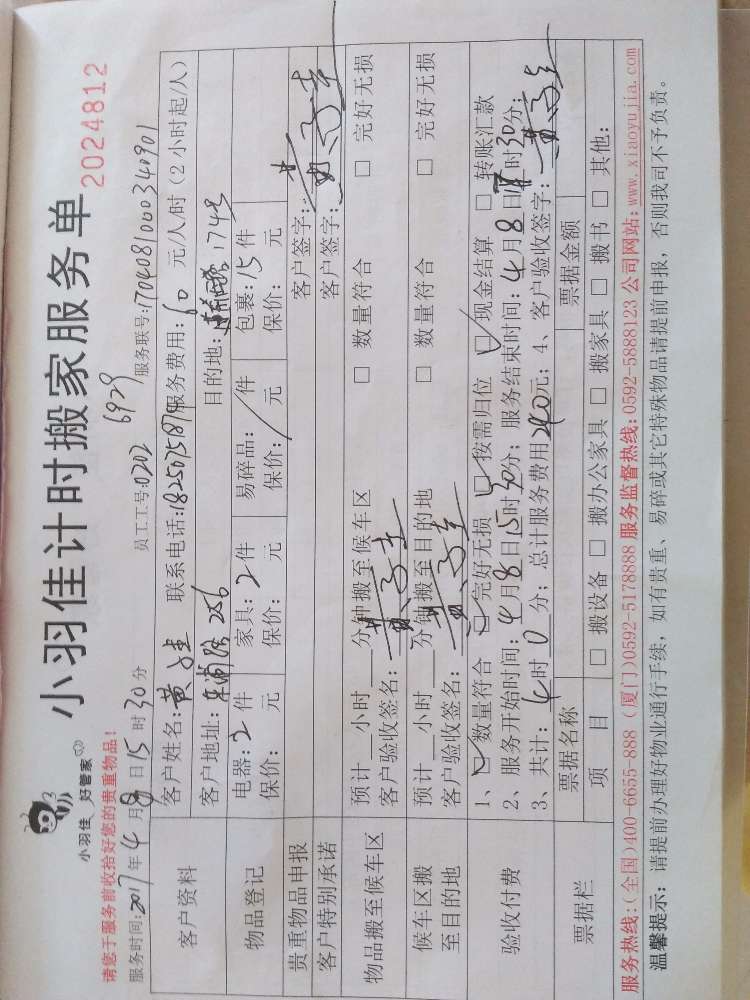 小羽佳 好管家
小羽佳计时搬家服务单
2024812
请您于服务前收拾好您的贵重物品！
服务时间:2017年4月8日15时30分 员工工号:0202 6929 服务联号:1704081000340901
客户资料
客户姓名: 联系电话: 服务费用:60元/人/时（2小时起/人）
客户地址: 256 目的地: 174号
物品登记
电器:2件 家具:2件 易碎品:/件 包裹:15件
保价: 元 保价: 元 保价: 元 保价: 元
贵重物品申报 客户签字:
客户特别承诺 客户签字:
物品搬至候车区
预计 小时 分钟搬至候车区 □ 数量符合 □ 完好无损
客户验收签名:
候车区搬至目的地
预计 小时 分钟搬至目的地 □ 数量符合 □ 完好无损
客户验收签名:
验收付费
1、☑数量符合 ☑完好无损 ☑按需归位 ☑现金结算 □转账汇款
2、服务开始时间:4月8日15时30分；服务结束时间:4月8日 时30分；
3、共计:4时0分；总计服务费用240元；4、客户验收签字:
票据栏
票据名称 票据金额
项 目 □ 搬设备 □ 搬办公家具 □ 搬家具 □ 搬书 □ 其他:
服务热线:(全国)400-6655-888 (厦门)0592-5178888 服务监督热线:0592-5888123 公司网站:www.xiaoyujia.com
温馨提示: 请提前办理好物业通行手续，如有贵重、易碎或其它特殊物品请提前申报，否则我司不予负责。